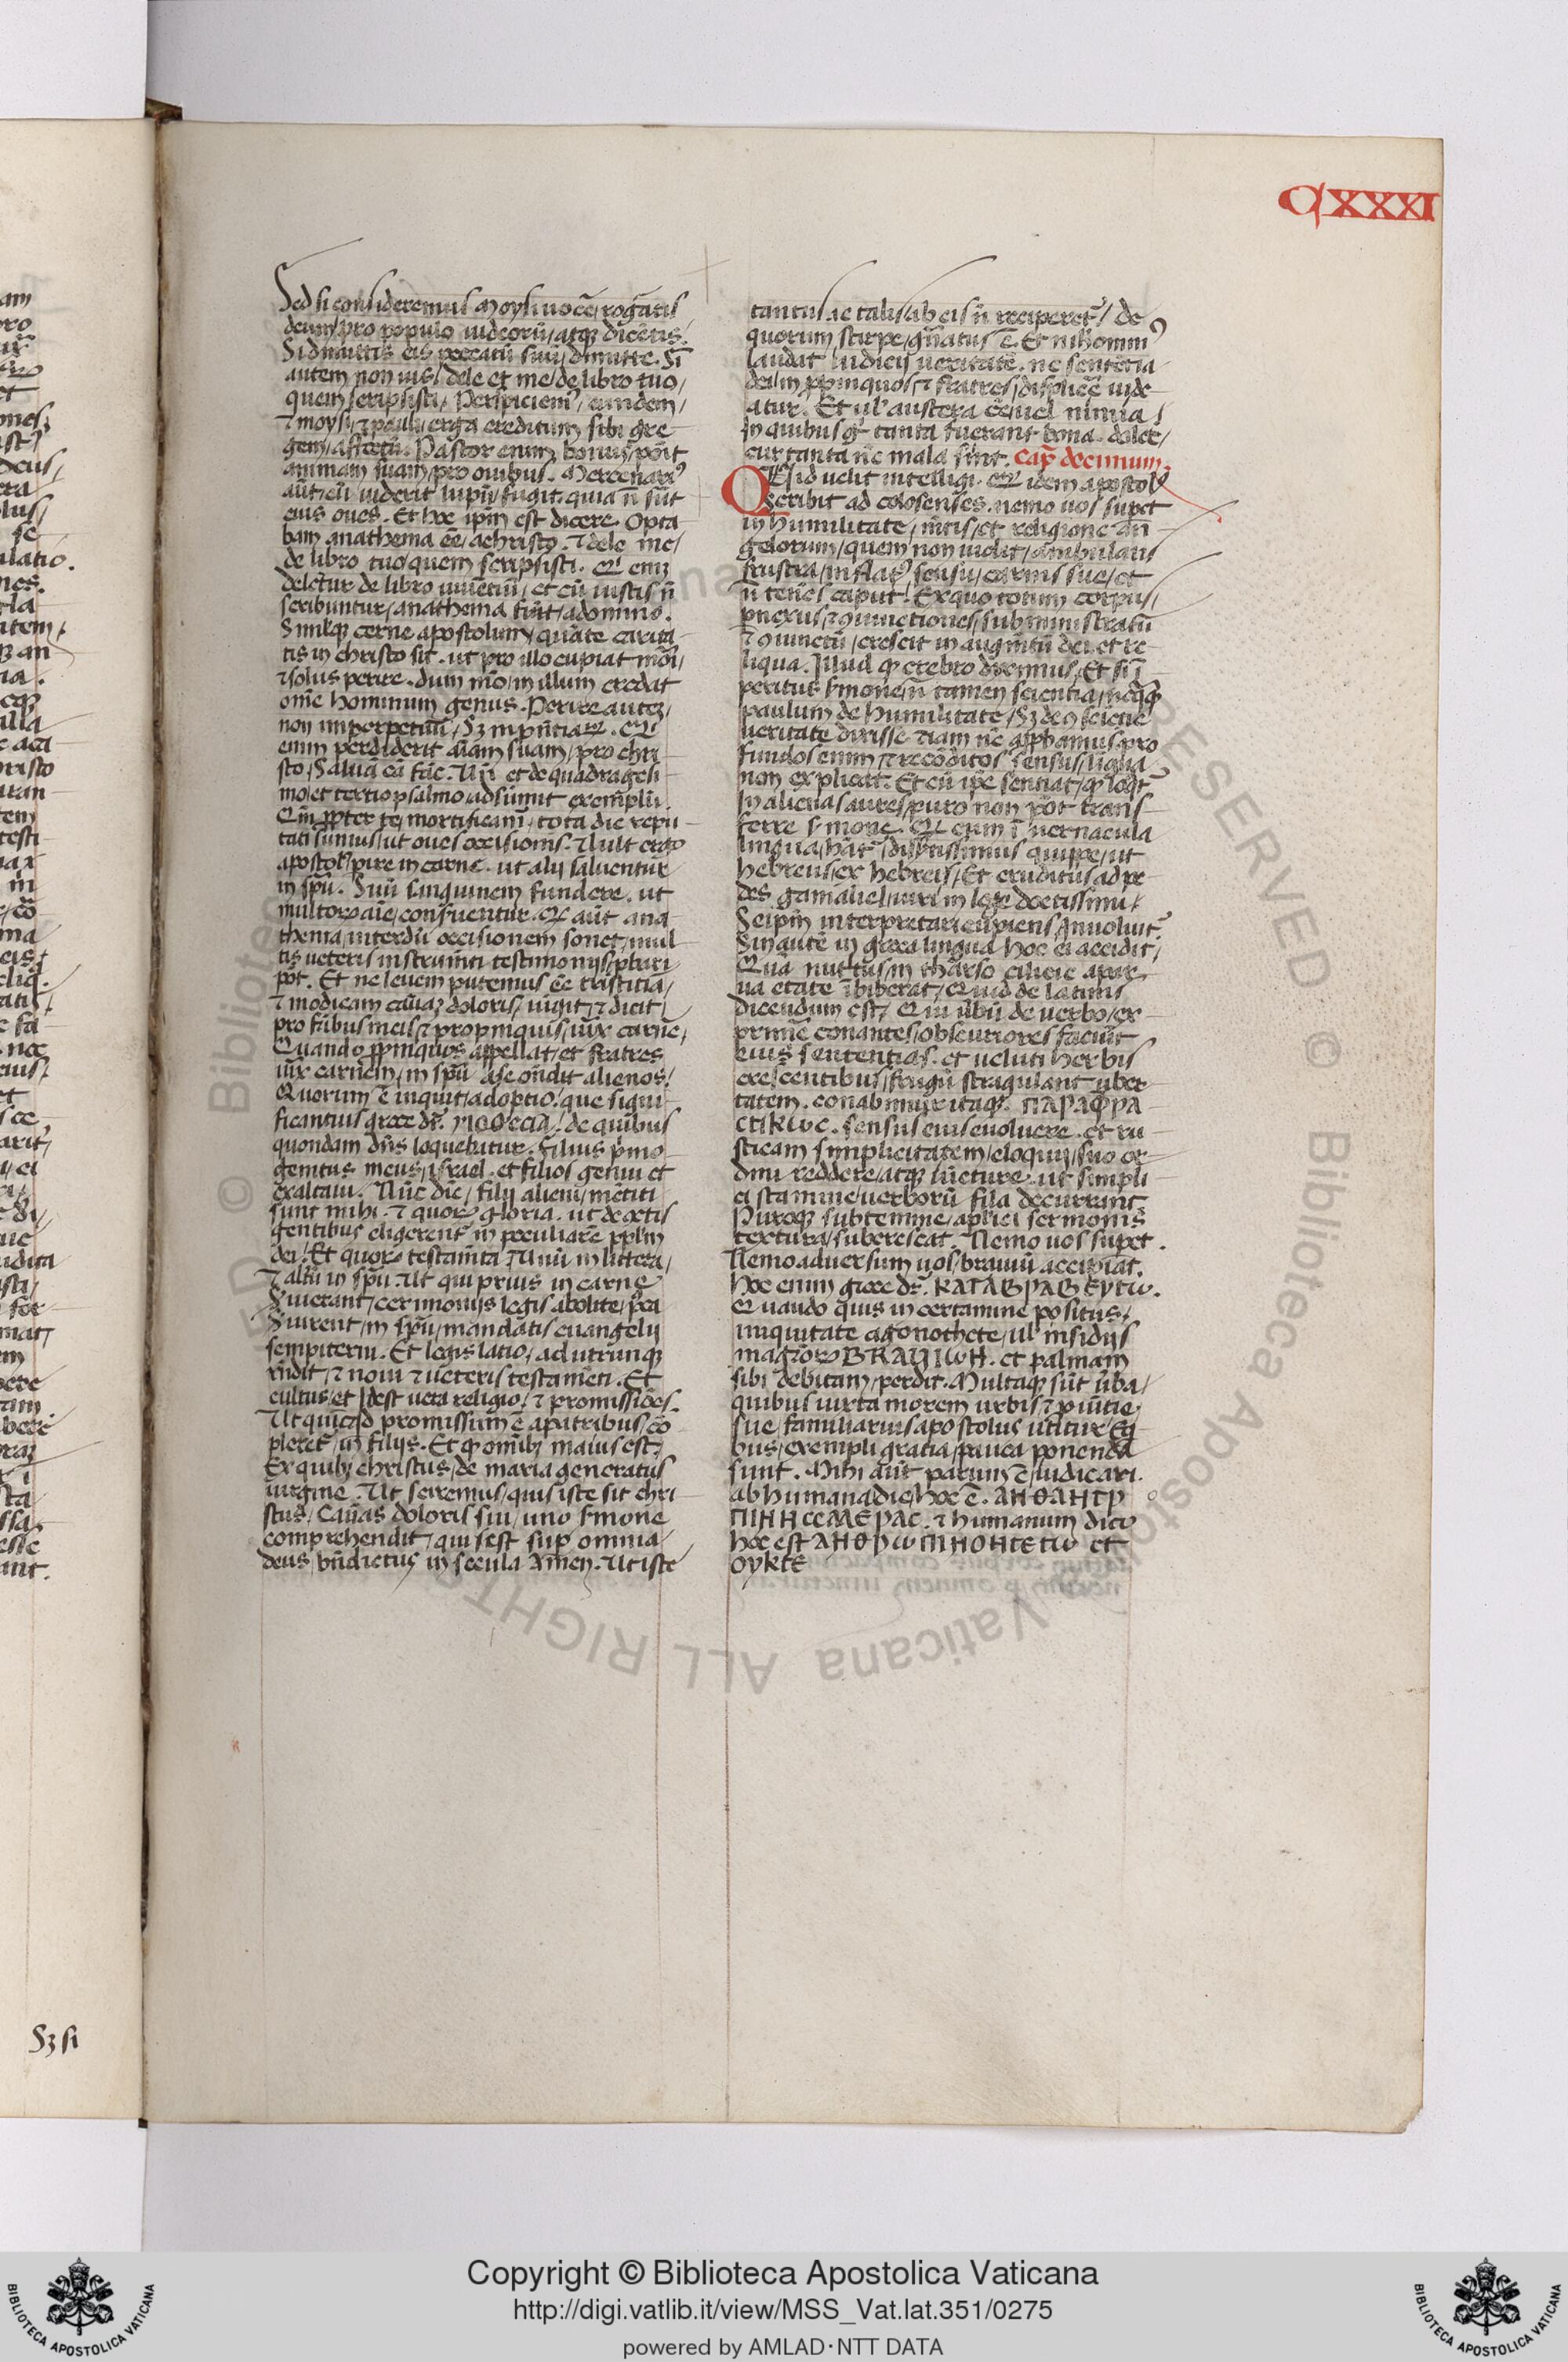 CXXXI
Sed si consideremus moysi uocē/ rogātis
deum/ pro populo iudeorū/ atqꝫ dicētis/
Si dimittis eis peccatū suū/ dimitte. Si
autem non uis/ dele et me/ de libro tuo/
quem scripsisti/ Perspiciemꝰ/ eundem/
⁊ moysi/ ⁊ pauli/ erga creditum sibi gre
gem/ affectū. Pastor enim bonus/ pōit
animam suam/ pro ouibus. Mercenariꝰ
aūt/ cū uiderit lupū/ fugit. quia n̄ sūt
eius oues. Et hoc ip̄m est dicere. Opta
bam anathema eē/ a christo. ⁊ dele me/
de libro tuo quem scripsisti. Qui enim
deletur de libro uiuētiū/ et cū iustis n̄
scribuntur/ anathema fiūt/ a domino.
Simulqꝫ cerne apostolum/ quāte carita
tis in christo sit. ut pro illo cupiat mori/
⁊ solus perire. dum mō/ in illum credat
om̄e hominum genus. Perire autem/
non in perpetuū/ Sꝫ inp̄ntiaꝝ. Qui
enim perdiderit aīam suam/ pro chri
sto/ Saluā eā fac. Uñ et de quadragesi
mo et tertio psalmo/ adsumit exemplū.
Qm̄ ꝓpter te/ mortificamur/ tota die repu
tati sumus/ ut oues occisionis. Uult ergo
apostolꝰ perire in carne. ut alij saluentur
in sp̄u. Suū sanguinem fundere. ut
multorꝝ aīe/ conseruentur. Qꝫ aūt ana
thema/ interdū occisionem sonet/ mul
tis ueteris instrumti testimonijs/ probari
pōt. Et ne leuem putemus eē tristitia/
⁊ modicam causaꝫ doloris/ iūgit/ ⁊ dicit/
pro fr̄ibus meis/ ⁊ propinquis/ iux̄ carnē/
Quando ꝓpinquos appellat/ et fratres
iux̄ carnem/ in sp̄u a se oñdit alienos/
Quorum ē inquit/ adoptio/ que signi
ficantius grece dr̄. ΥΙΟΘΕCΙΑ/ de quibus
quondam dn̄s loquebatur. Filius p̄mo
genitus meus/ israel. et filios genui et
exaltaui. Nūc dic/ filij alieni/ mētiti
sunt mihi. ⁊ quorꝝ gloria. ut de cētis
gentibus eligerent in peculiarē ppl̄m
dei/ Et quorꝝ testam̄ta/ Unū in littera/
⁊ altū in sp̄u. Ut qui prius in carne
Seruierant/ cerimonijs legis abolite/ p̄ea
Seruirent/ in sp̄u/ mandatis euangelij
sempiterni. Et legislatio/ ad utrunqꝫ
rn̄dit/ ⁊ noui ⁊ ueteris testamēti. Et
cultus/ et Idest uera religio/ ⁊ promissiões.
Ut quicqd promissum ē a patribus/ cō
pleret/ in filijs. Et qꝫ omibꝫ maius est/
Ex quibꝫ christus/ de maria generatus
uirgine. Ut sciremus/ quis iste sit chri
stus/ Causas doloris sui/ uno s̄mone
comprehendit/ qui est sup omnia
deus/ bn̄dictus in secula Amen. Ut iste
tantus/ ac talis/ ab eis n̄ reciperet̃/ de
quorum stirpe/ gn̄atus ē. Et nihominꝰ
laudat iudicij ueritatē. ne sentētia
dei in ꝓpinquos/ ⁊ fratres/ displicē uide
atur. Et ul' austera eē/ uel nimia/
In quibus gͦ tanta fuerant bona. dolet/
cur tanta nc̄ mala sint. Cap̄ decimum.
QUid uelit intelligi. Qꝫ idem apostolꝰ
scribit ad colosenses. nemo uos supet
in humilitate/ mētis/ et religione an
gelorum/ quem non uidit/ ambulans
frustra/ inflatꝰ/ sensu/ carnis sue/ et
n̄ tenēs caput/ Ex quo totum corpus/
pnexus/ ⁊ coniunctiones/ subministratū
⁊ coniunctū/ crescit in augm̄tū dei. et re
liqua. Illud qꝫ crebro diximus/ Et si ī
peritus s̄mone/ n̄ tamen scientia/ neqꝗꝫ
paulum de humilitate/ Sꝫ de cōscientie
ueritate dixisse etiam nc̄ approbamus. pro
fundos enim/ ⁊ recōditos sensus/ ligua
non explicat. Et cū ip̄e sentiat/ qꝫ loqt̃
In alienas aures/ puro non pōt trans
ferre s̄mone. Qꝫ cum ī uernacula
lingua/ hāt̄/ disertissimus quippe/ ut
hebreus/ ex hebreis/ Et eruditus ad pe
des gamaliel/ uiri in lege doctissimi/
Seip̄m interpretari cupiens/ inuoluit̃.
Sin aute in greca lingua hoc ei accidit/
Quā nutritus/ in tharso cilicie a par
ua etate ībiberat/ Quid de latinis
dicendum est/ Qui ūbū de uerbo/ ex
primē conantes/ obscuriores faciūt
eius sententias. et ueluti herbis
crescentibus/ frugū stragulant uber
tatem. conabimur itaqꝫ. ΠΑΡΑΦΡΑ
CTIKωC. sensus eius euoluere. et ru
sticam simplicitatem/ eloquij/ suo or
dini reddere/ atqꝫ iūcture. ut simpli
ci stamine/ uerborū fila decurrant
Puroqꝫ subtemine/ apl'ici sermonis
textura/ subcrescat. Nemo uos supet.
Nemo aduersum uos/ brauiū accipiat.
hoc enim grece dr̄. ΚΑΤΑΒΡΑΒΕΥΕΤω.
Quando quis in certamine positus/
iniquitate agonothete/ ul' insidijs
magr̄orꝝ ΒRΑΥΙωΗ. et palmam
sibi debitam/ perdit. Multaqꝫ sūt ūba/
quibus iuxta morem urbis/ ⁊ puītie
sue/ familiarius apostolus utitur/ Eq
bus/ exempli gratia/ pauca ponenda
sunt. Mihi aūt parum ē/ iudicari
ab humana die/ hoc ē. ΑΗΘΑΗCΡ
ΠΙΗΗCCΜΕΡΑC. ⁊ humanum dico
hoc est ΑΗΘΡωΠΗΟΗCΕΓω et
ΟΥΚΤΕ
Sꝫ si
Copyright © Biblioteca Apostolica Vaticana
http://digi.vatlib.it/view/MSS_Vat.lat.351/0275
powered by AMLAD·NTT DATA